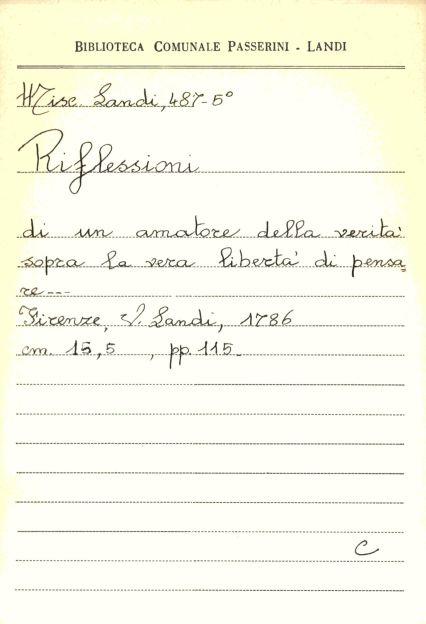 BIBLIOTECA COMUNALE PASSERINI - LANDI
Misc. Landi, 487-5°
Riflessioni
di un amatore della verità
sopra la vera libertà di pensa=
re---
Firenze, V. Landi, 1786
cm. 15,5 , pp. 115.
C